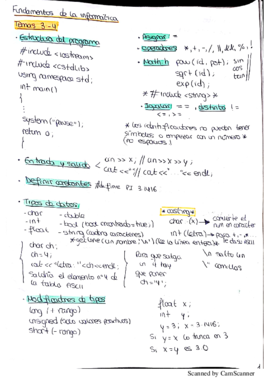 Fundamentos de la informática
Temas 3-4
• Estructura del programa
#include <iostream>
#include <cstdlib>
using namespace std;
int main()
{
system("pause");
return 0;
}
• Asignar =
• Operadores *, +, -, /, ||, &&, %, !
• Math.h pow(rd, pot); sin
sqrt(rd); cos
exp(rd); tan
* #include <string> *
• Igualar ==, distintos !=
<=, >=
* Los identificadores no pueden tener
símbolos o empezar con un número
(no espacios!)
• Entrada y salida
cin >> x; // cin >> x >> y;
cout <<" " // cout << " " << endl;
• Definir constantes #define PI 3.1416
• Tipos de datos:
- char
- int
- float
- double
- bool
- string (cadena caracteres)
* casting *
char (x)
convierte el
num en caracter
int (letra)
char ch;
ch=4;
cout << "letra: " << ch << endl;
Saldría el elemento nº 4 de
la tabla ASCII
Para que salga
un 4 hay
que poner
ch='4';
\n salto lin
\" comillas
• Modificadores de tipos
long (+ rango)
unsigned (todo valores positivos)
short (- rango)
float x;
int y;
y=3; x=3.1416;
Si y=x lo trunca en 3
Si x=y es 3.0
Scanned by CamScanner